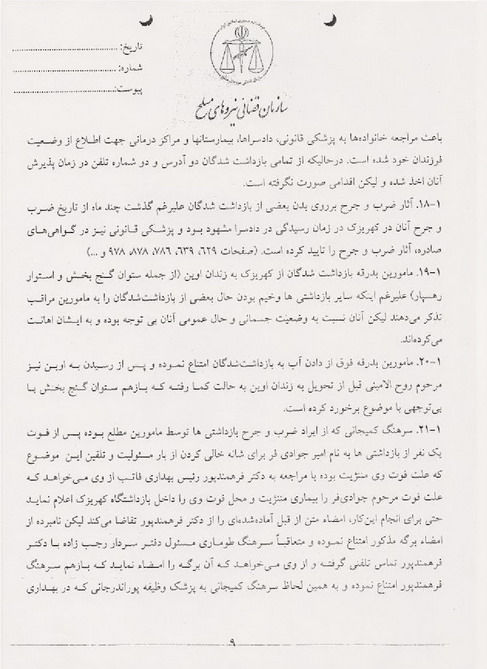 تاریخ:
شماره:
پیوست:
سازمان قضائی نیروهای مسلح
باعث مراجعه خانواده‌ها به پزشکی قانونی، دادسراها، بیمارستانها و مراکز درمانی جهت اطلاع از وضعیت
فرزندان خود شده است. درحالیکه از تمامی بازداشت شدگان دو آدرس و دو شماره تلفن در زمان پذیرش
آنان اخذ شده و لیکن اقدامی صورت نگرفته است.
۱-۱۸. آثار ضرب و جرح برروی بدن بعضی از بازداشت شدگان علیرغم گذشت چند ماه از تاریخ ضرب
و جرح آنان در کهریزک در زمان رسیدگی در دادسرا مشهود بود و پزشکی قانونی نیز در گواهی‌های
صادره، آثار ضرب و جرح را تایید کرده است. (صفحات ۶۲۹، ۶۳۹، ۷۸۶، ۸۷۸، ۹۷۸ و ...)
۱-۱۹. مامورین بدرقه بازداشت شدگان از کهریزک به زندان اوین (از جمله ستوان گنج بخش و استوار
رهسپار) علیرغم اینکه سایر بازداشتی ها وخیم بودن حال بعضی از بازداشت‌شدگان را به مامورین مراقب
تذکر می‌دهند لیکن آنان نسبت به وضعیت جسمانی و حال عمومی آنان بی توجه بوده و به ایشان اهانت
می‌کرده‌اند.
۱-۲۰. مامورین بدرقه فوق از دادن آب به بازداشت‌شدگان امتناع نموده و پس از رسیدن به اوین نیز
مرحوم روح الامینی قبل از تحویل به زندان اوین به حالت کما رفته که بازهم ستوان گنج بخش با
بی‌توجهی با موضوع برخورد کرده است.
۱-۲۱. سرهنگ کمیجانی که از ایراد ضرب و جرح بازداشتی ها توسط مامورین مطلع بوده پس از فوت
یک نفر از بازداشتی ها به نام امیر جوادی فر برای شانه خالی کردن از بار مسئولیت و تلقین این موضوع
که علت فوت وی مننژیت بوده با مراجعه به دکتر فرهمندپور رئیس بهداری فاتب از وی می‌خواهد که
علت فوت مرحوم جوادی‌فر را بیماری مننژیت و محل فوت وی را داخل بازداشتگاه کهریزک اعلام نماید
حتی برای انجام این‌کار، امضاء متن از قبل آماده‌شده‌ای را از دکتر فرهمندپور تقاضا می‌کند لیکن نامبرده از
امضاء برگه مذکور امتناع نموده و متعاقباً سرهنگ طوماری مسئول دفتر سردار رجب زاده با دکتر
فرهمندپور تماس تلفنی گرفته و از وی می‌خواهد که آن برگه را امضاء نماید که بازهم سرهنگ
فرهمندپور امتناع نموده و به همین لحاظ سرهنگ کمیجانی به پزشک وظیفه پوراندرجانی که در بهداری
۹